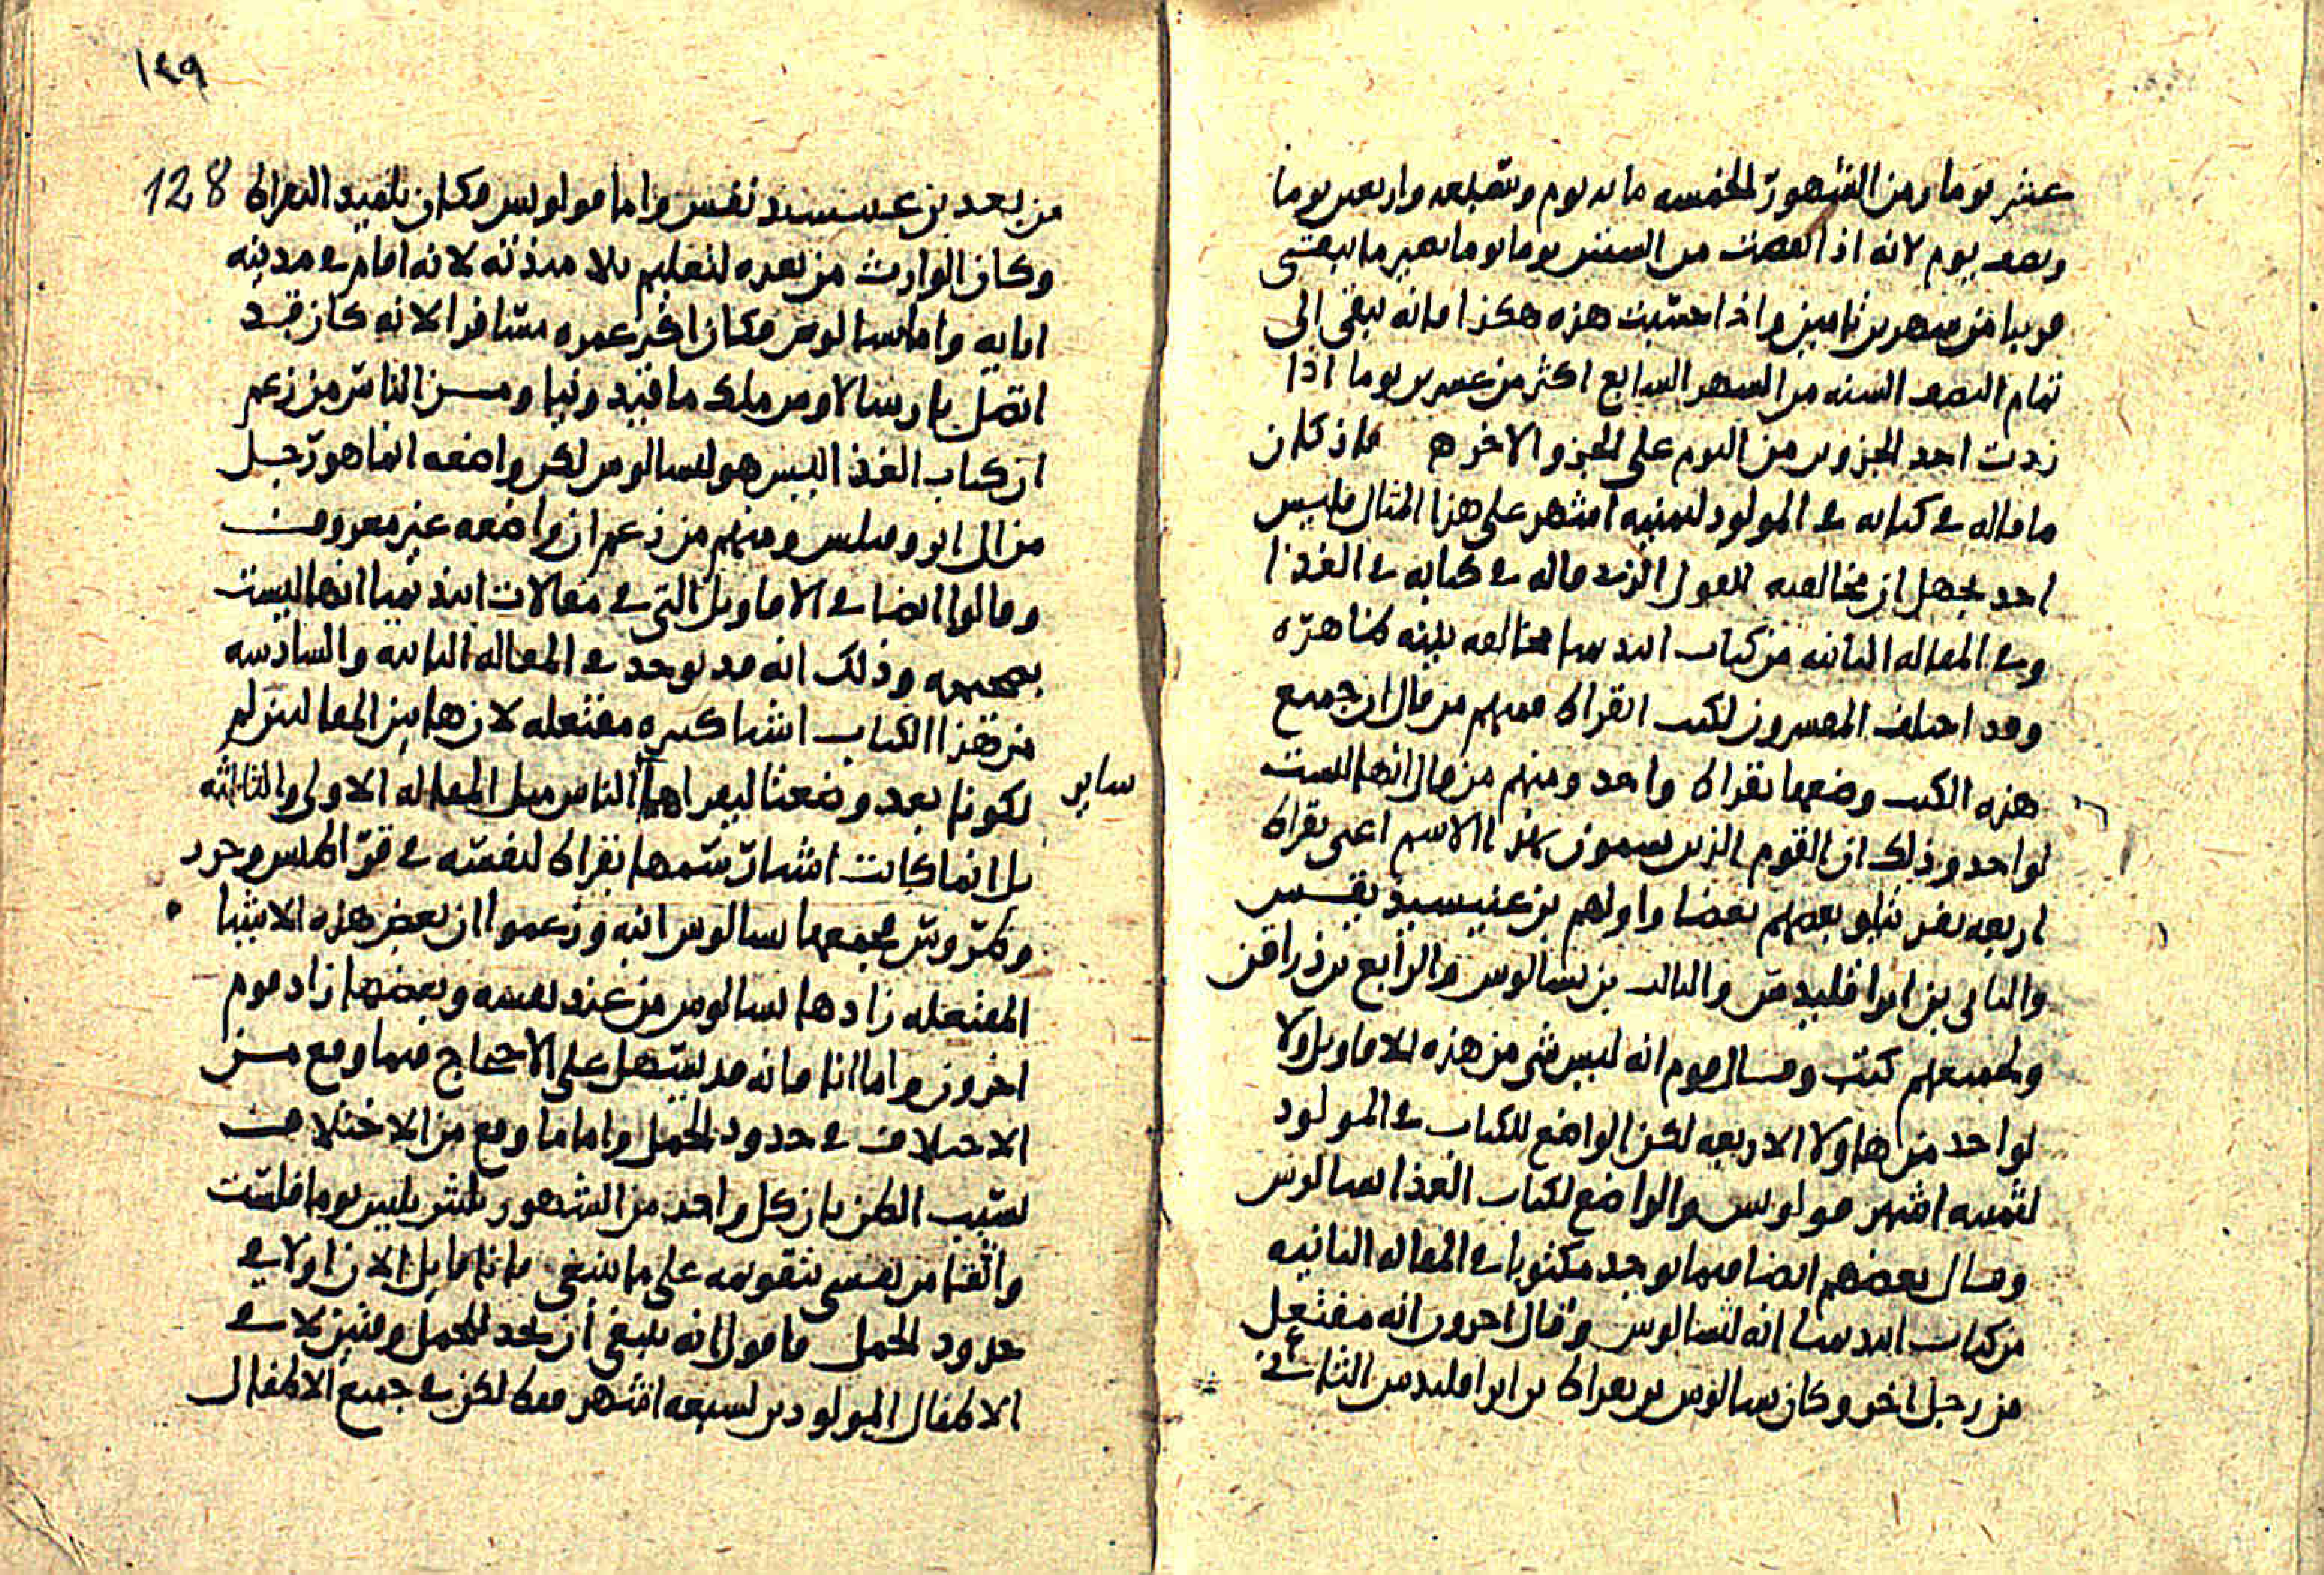 عشر يوما ومن الشهور الخمسه مائه يوم وسبعه واربعين يوما
ونصف يوم لانه اذا نقصت من الستين يوما يوما بصير ما يبقى
قريبا من شهرين ثامين واذا حسبت هذه هكذا فانه يبقى الى
تمام النصف السنه من الشهر السابع اكثر من عشرين يوما اذا
زدت احد الجزوين من اليوم على الجزو الاخر ه فاذ كان
ما قاله في كتابه في المولود لثمنيه اشهر على هذا المثال فليس
احد يجهل ان مخالفه القول الذي قاله في كتابه في الغذا
وفي المقاله الثانيه من كتاب ابيديميا مخالفه بينه ظاهره
وقد اختلف المفسرون لكتب ابقراط فمنهم من قال ان جميع
هذه الكتب وضعها بقراط واحد ومنهم من قال انها ليست
لواحد وذلك ان القوم الذين يسمون بهذا الاسم اعني بقراط
اربعه نفر يتلو بعضهم بعضا واولهم بن غنيسيد يقس
والثاني بن ابراقليدس والثالث بن ثسالوس والرابع بن ذراقن
ولجميعهم كتب وقال قوم انه ليس شي من هذه الاقاويل ولا
لواحد من هاولا الاربعه لكن الواضع للكتاب في المولود
لثمنيه اشهر فولوبس والواضع لكتاب الغذا ثسالوس
وقال بعضهم ايضا فيما يوجد مكتوبا في المقاله الثانيه
من كتاب ابيديميا انه لثسالوس وقال اخرون انه مفتعل
من رجل اخر وكان ثسالوس بن بقراط بن ابراقليدس الثاني
١٤٩
128
من بعد بن غنيسيد نقس واما فولوبس فكان تلميذ ابقراط
وكان الوارث من بعده لتعليم تلامذته لانه اقام في مدينه
ابايه واما ثسالوس فكان اكثر عمره مسافرا لانه كان قد
اتصل بارسالاوس ملك ماقيدونيا ومن الناس من زعم
ان كتاب الغذا ليس هو لثسالوس لكن واضعه انما هو رجل
من ال ابروفيلس ومنهم من زعم ان واضعه غير معروف
وقالوا ايضا في الاقاويل التي في مقالات ابيديميا انها ليست
بصحيحه وذلك انه قد يوجد في المقاله الثانيه والسادسه
من هذا الكتاب اشيا كثيره مفتعله لان هاتين المقالتين لم
تكونا بعد وضعتا ليقراهما ساير الناس مثل المقاله الاولى والثالثه
بل انما كانت اشيا رسمها بقراط لنفسه في قراطيس وجرد
وكروس فجمعها ثسالوس ابنه وزعموا ان بعض هذه الاشيا
المفتعله زادها ثسالوس من عند نفسه وبعضها زاد قوم
اخرون واما انا فانه قد يسهل على الاحتجاج فيما وقع من
الاختلاف في حدود الحمل واما ما وقع من الاختلاف
بسبب الظن بان كل واحد من الشهور ثلثين يوما فلست
واثقا من نفسي بتقويمه على ما ينبغي فانا قايل الان اولا في
حدود الحمل فاقول انه ينبغي ان تحد الحمل وميز لا في
الاطفال المولودين لسبعه اشهر فقط لكن في جميع الاطفال